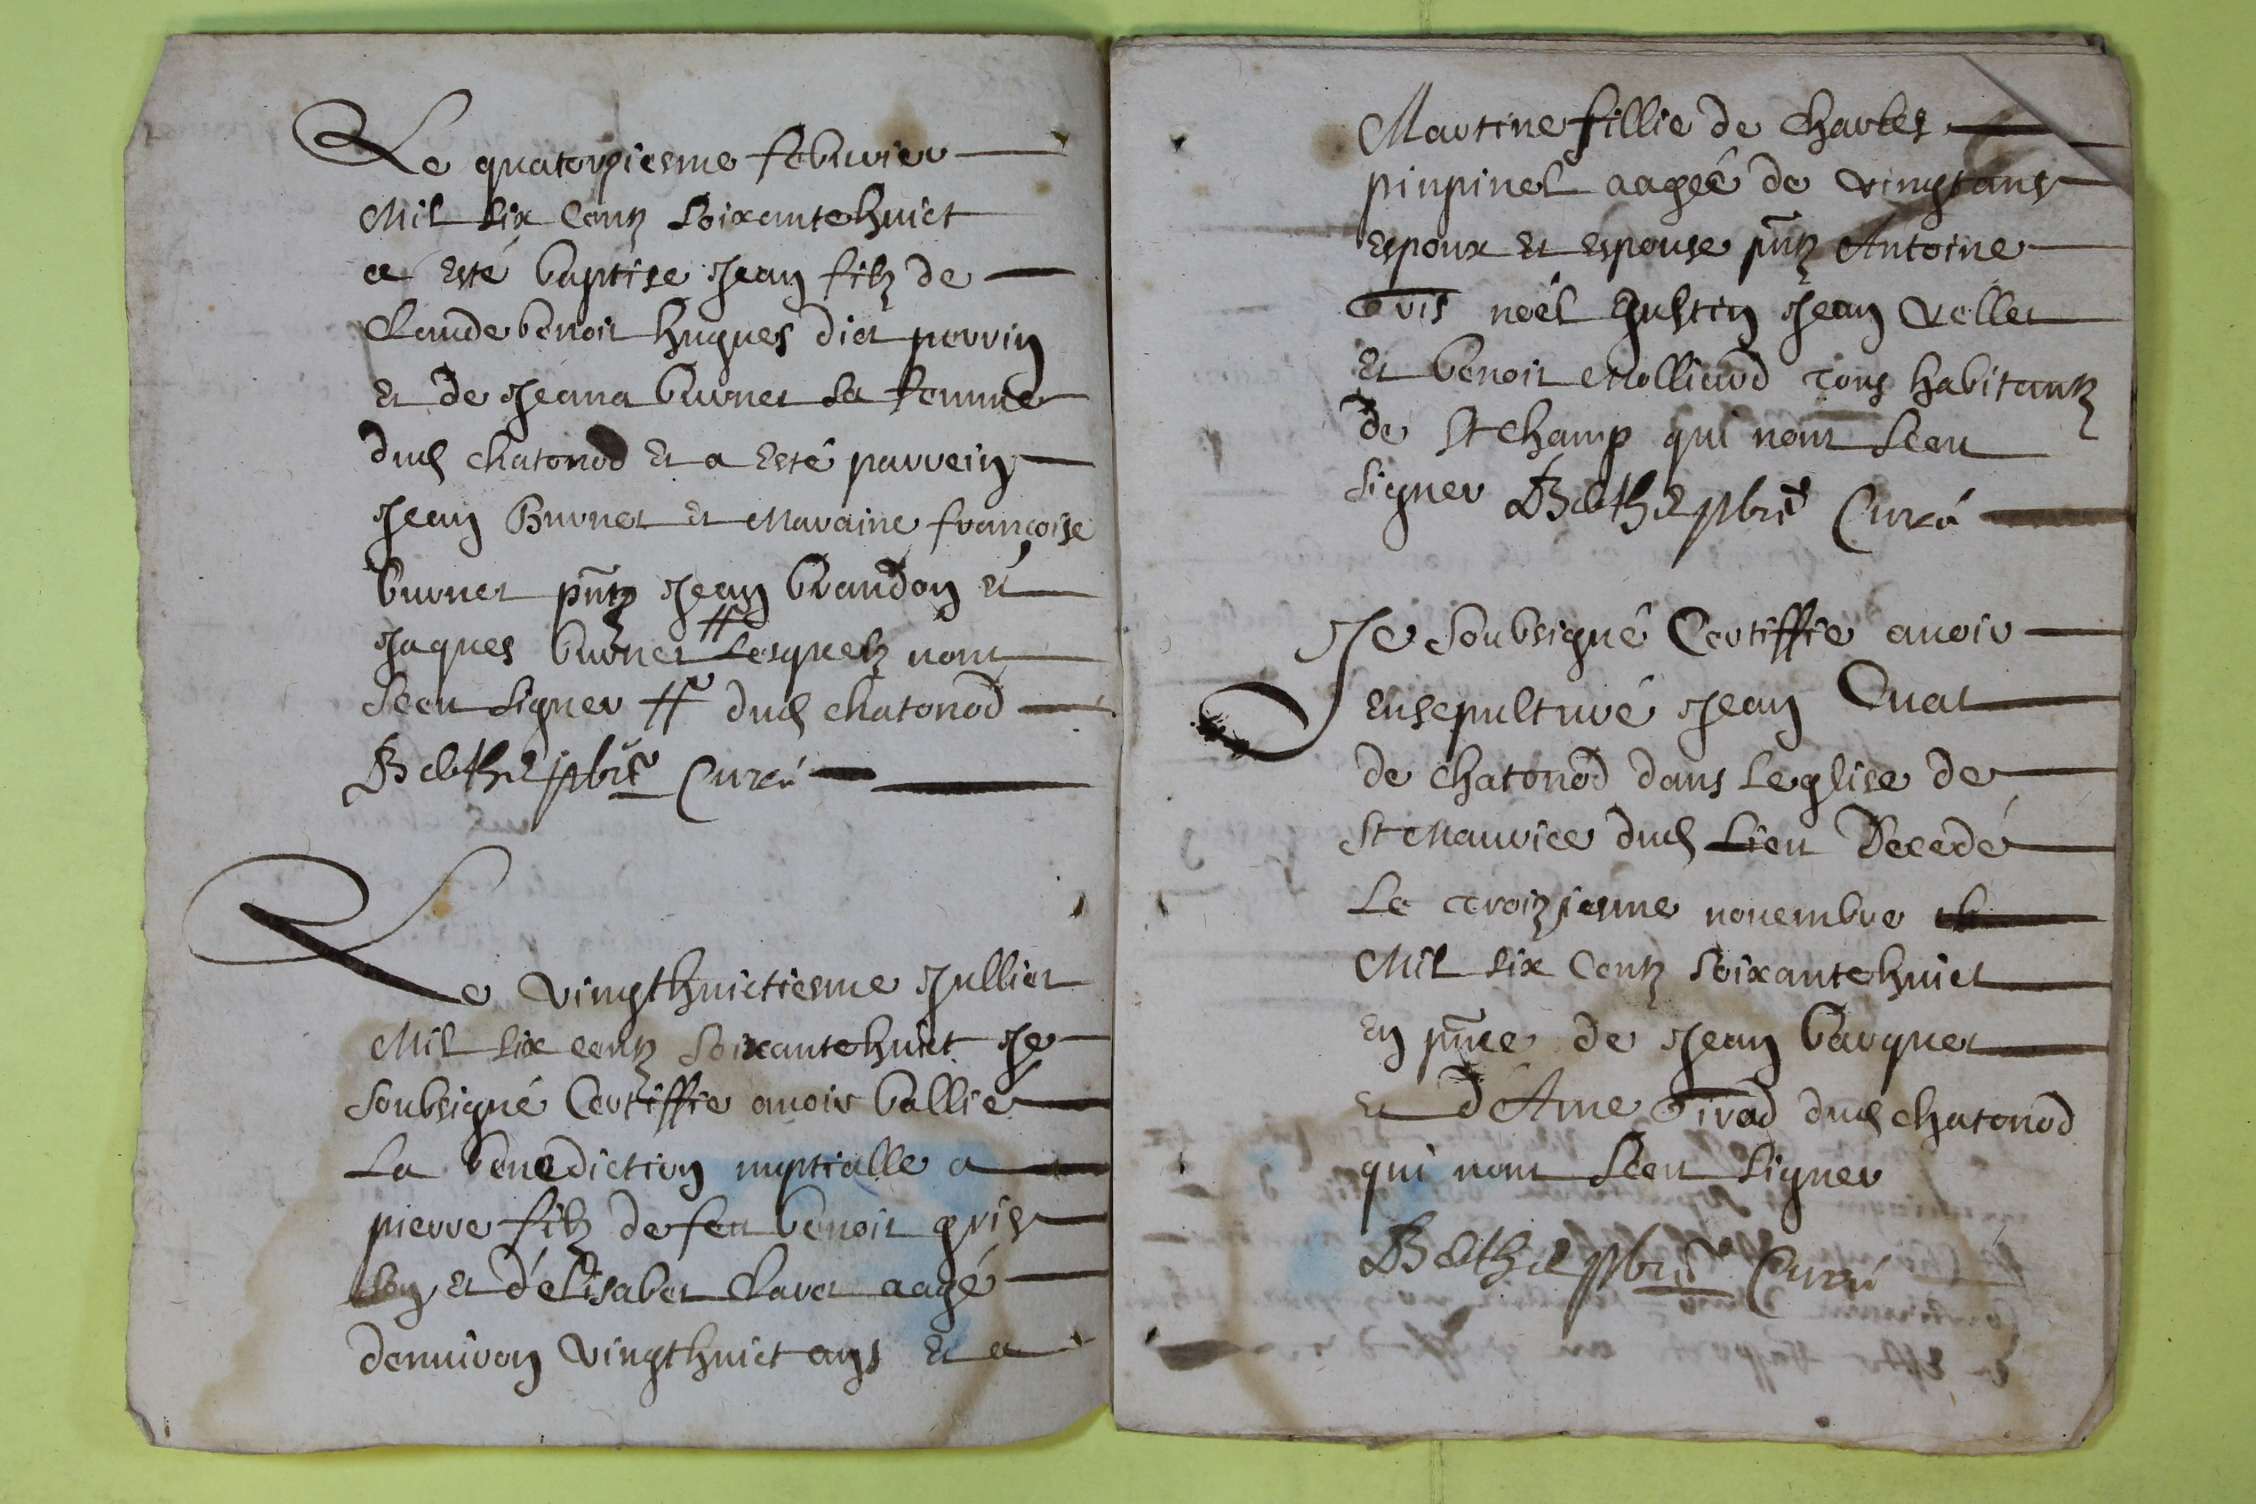 Le quatorziesme febvrier
Mil six centz soixante huict
a esté baptise Jean filz de
Claude benoit hugues dict perrin
et de Jeana burnet sa femme
dud chatonod et a esté parrein
Jean Burnet et Maraine françoise
burnet pntz Jean brandon et
Jaques burnet # lesquelz nont
sceu signer # dud chatonod
Bethe pbre Curé
Le vingthuictiesme Julliet
Mil six centz soixante huict Je
soubsigné Certiffie avoir ballié
La benediction nuptialle a
pierre filz de feu benoit gris
son et d'élisabet Claret aagé
denviron vingthuict ans et a
Martine fillie de Charles
pinpinel aagée de vingt ans
espoux et espouse pntz Antoine
noél Jean Vellet
et benoit Molliard tous habitantz
de St Champ qui nont sceu
signer Bethe pbre Curé
Je soubsigné Certiffie avoir
ensepulturé Jean Cuat
de chatonod dans Leglise de
St Maurice dud Lieu Decedé
Le troizjesme novembre
Mil six Centz soixante huict
en pnce de Jean barquet
et d'Ame Girod dud chatonod
qui nont sceu signer
Bethe pbre Curé